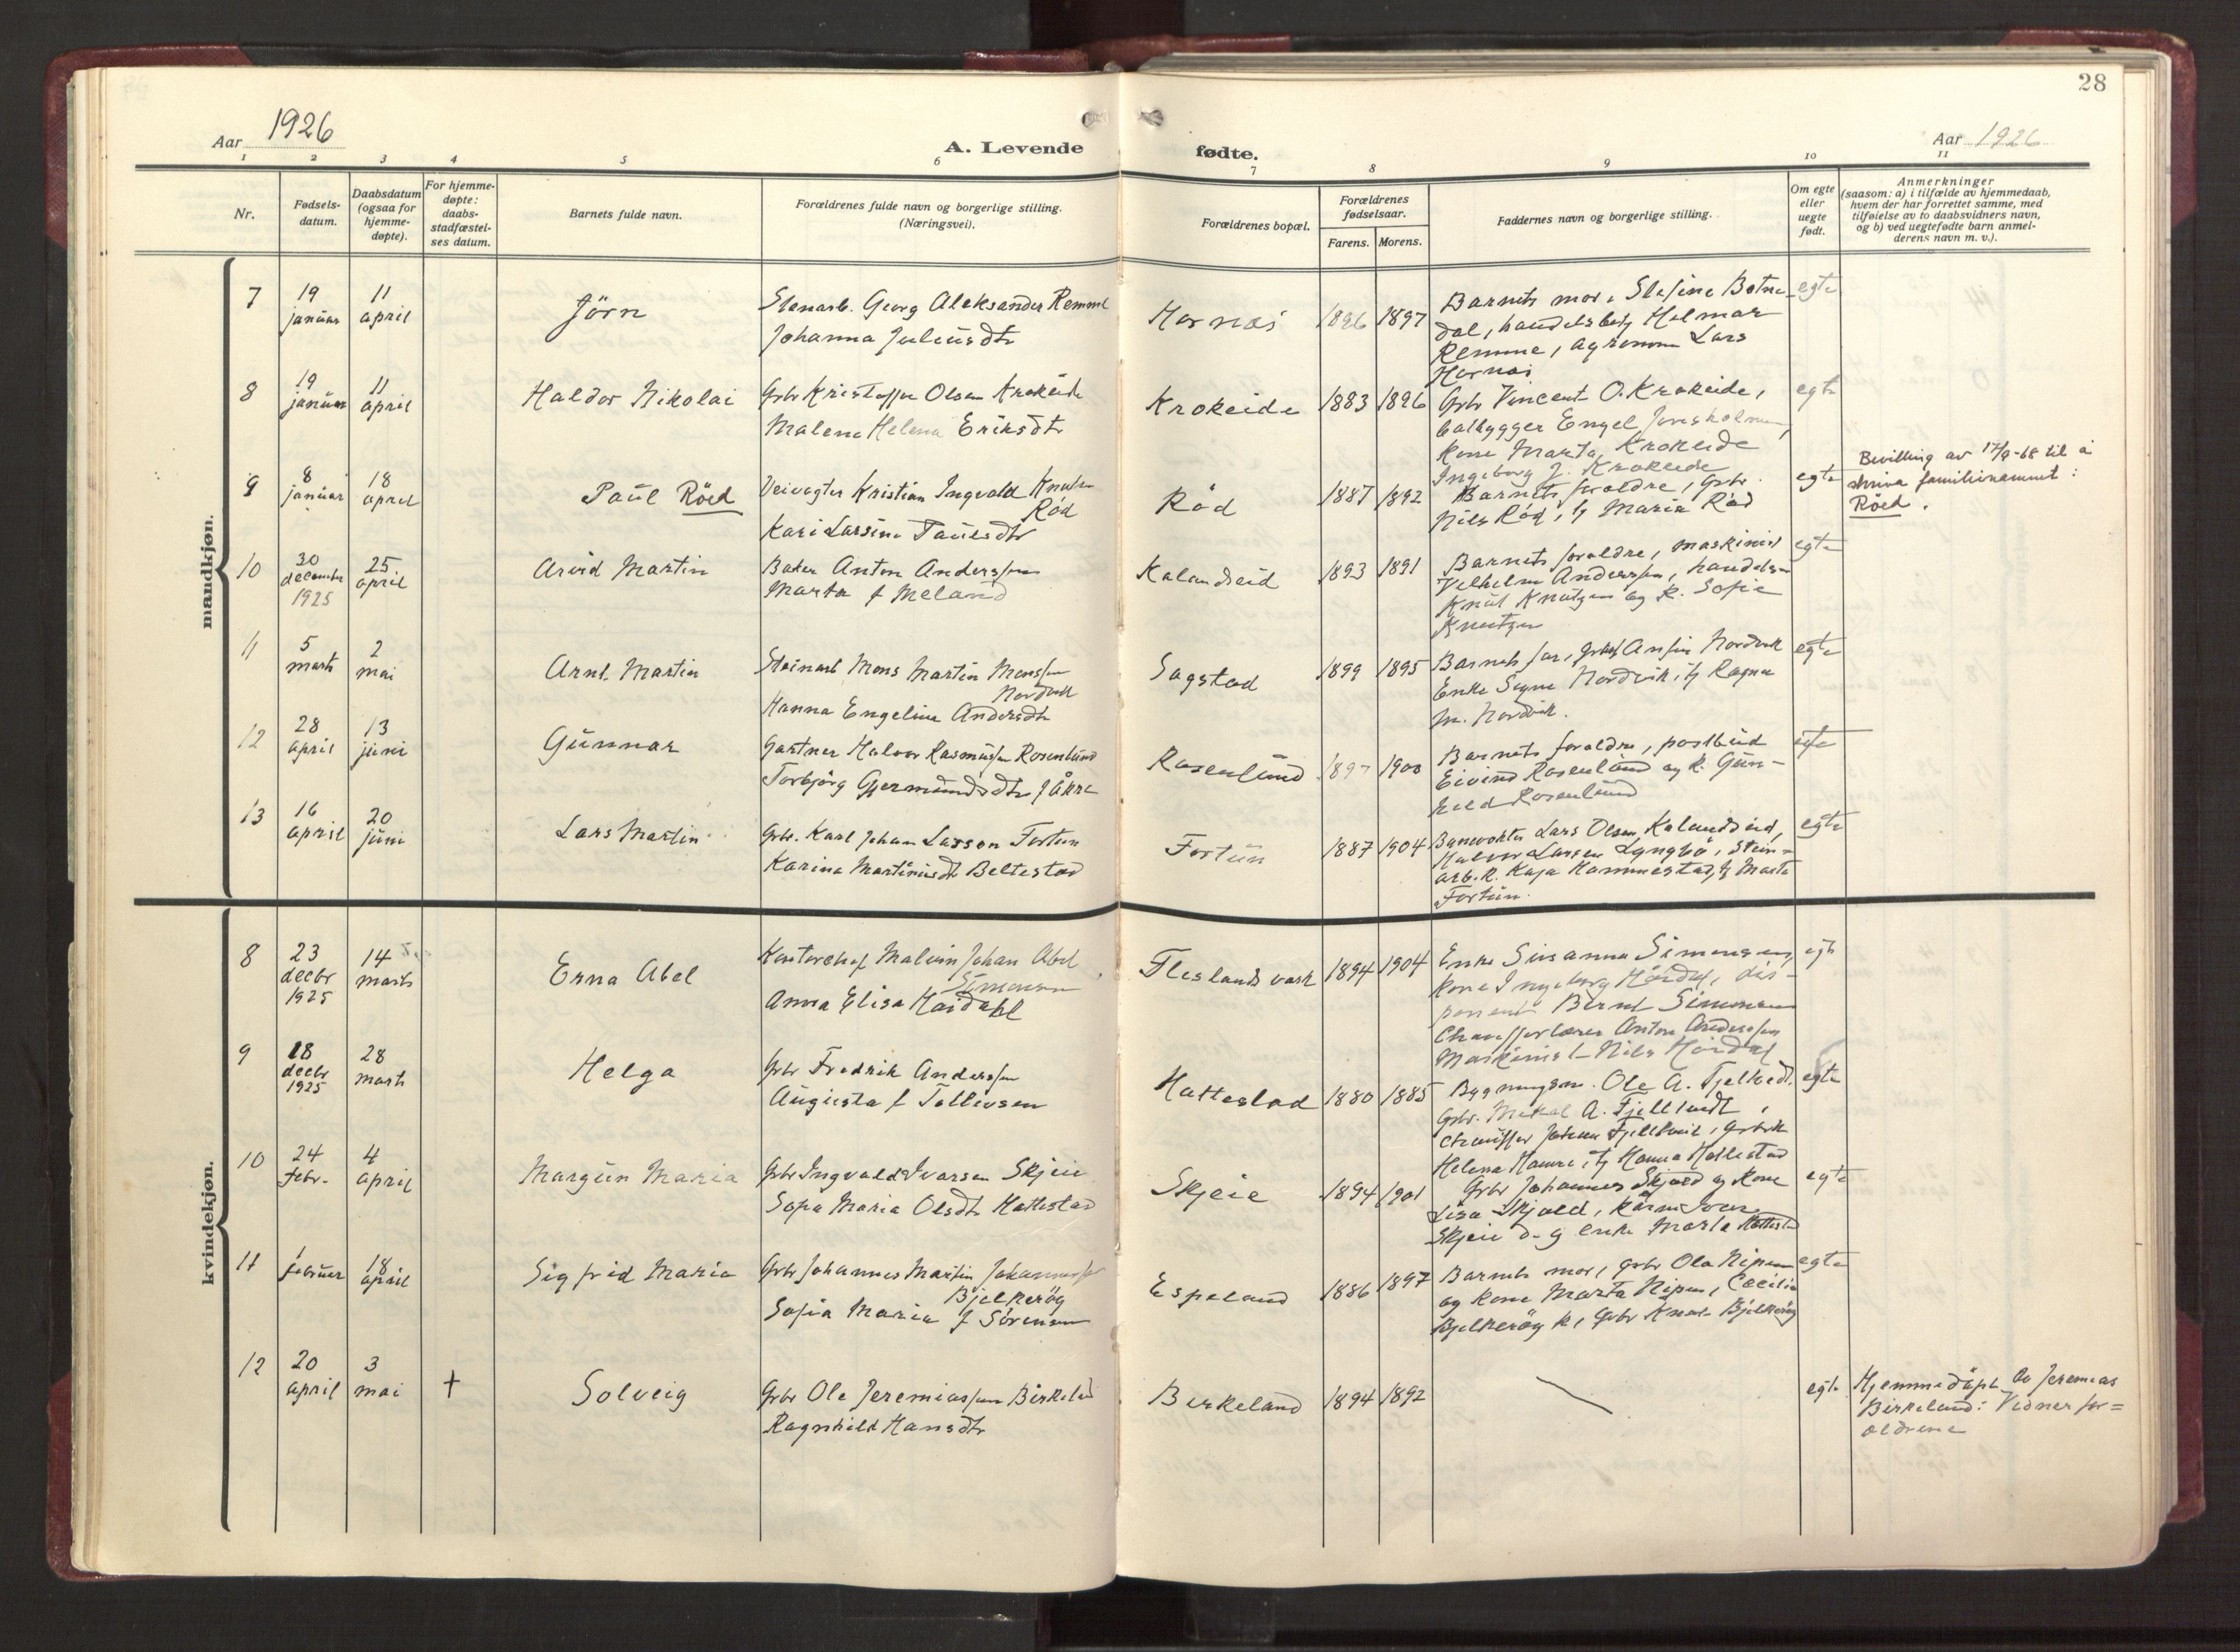 28
Aar 1926
A. Levende fødte.
Aar 1926
1 2 3 4 5 6 7 8 9 10 11
Nr.
Fødsels-
datum.
Daabsdatum
(ogsaa for
hjemme-
døpte).
For hjemme-
døpte:
daabs-
stadfæstel-
ses datum.
Barnets fulde navn.
Forældrenes fulde navn og borgerlige stilling.
(Næringsvei).
Forældrenes bopæl.
Forældrenes
fødselsaar.
Farens. Morens.
Faddernes navn og borgerlige stilling.
Om egte
eller
uegte
født.
Anmerkninger
(saasom: a) i tilfælde av hjemmedaab,
hvem der har forrettet samme, med
tilføielse av to daabsvidners navn,
og b) ved uegtefødte barn anmel-
derens navn m. v.).
mandkjøn.
7
19
januar
11
april
Jörn
Stenarb. Georg Aleksander Remme
Johanna Juliusdtr
Hornæs
1896 1897
Barnets mor, Stefine Botne-
dal, handelsbetj Holmar
Remme, agronom Lars
Hornæs
egte
8
19
januar
11
april
Haldor Nikolai
Gbr Kristoffer Olsen Krokeide
Malene Helena Eriksdtr
Krokeide
1883 1896
Gbr Vincent O. Krokeide,
baatbygger Engel Jonsholmen,
kone Marta Krokeide
Ingeborg J. Krokeide
egte
9
8
januar
18
april
Paul Röed
Veivogter Kristian Ingvald Knuts
Röd
Kari Larsine Paulsdtr
Röd
1887 1892
Barnets foræeldre, Gbr.
Nils Röd, pj Maria Röd
egte
Bevilling av 17/9-68 til å
skrive familienavnet:
Röed.
10
30
december
1925
25
april
Arvid Martin
Baker Anton Anderssen
Marta f Meland
Kalandseid
1893 1891
Barnets forældre, maskinist
Vilhelm Anderssen, handelsm
Knut Knutzen og k. Sofie
Knutzen
egte
11
5
marts
2
mai
Arnt Martin
Steinarb Mons Martin Monssen
Nordvik
Hanna Engeline Andersdtr
Sagstad
1899 1895
Barnets far, Ansin Nordvik
Enke Signe Nordvik, pj Ragna
M. Nordvik.
egte
12
28
april
13
juni
Gunnar
Gartner Halvor Rasmussen Rosenlund
Torbjörg Gjermundsdtr f Åkre
Rosenlund
1897 1900
Barnets forældre, postbud
Eivind Rosenlund og k. Gun-
hild Rosenlund
egte
13
16
april
20
juni
Lars Martin
Gbr. Karl Johan Larsen Fortun
Karina Martinusdt Beltestad
Fortun
1887 1904
Banevokter Lars Olsen Kalandseid,
Halvor Larsen Lyngbö, stein-
arb. k. Kaja Hammestad, pj Marta
Fortun.
egte
kvindekjøn.
8
23
decbr
1925
14
marts
Erna Abel
Kontorchef Malvin Johan Abel
Simonsen
Anna Elisa Haidahl
Fleslandsvaag
1894 1904
Enke Susanna Simonsen,
kone Ingeborg Hördal, dis-
ponent Bernt Simonsen
Chaufförlærer Anton Anderssen
Maskinist Nils Hördal
egte
9
18
decbr
1925
28
marts
Helga
Gbr Fredrik Anderssen
Augusta f Tollevsen
Hattestad
1880 1885
Bygningsm. Ole A. Fjeltvedt
Gbr. Mikal A. Fjelltvedt,
chauffør Johan Fjelltveit, Gbrk
Helena Hamre, pj Hanna Hattestad
egte
10
24
febr.
4
april
Margun Maria
Gbr Ingvald Ivarsen Skjeie
Sofia Maria Olsdtr Hattestad
Skjeie
1894 1901
Gbr Johannes Skjold og kone
Lisa Skjold, Karin Ivars
Skjeie d. y enke Marta Hattestad
egte
11
1
februar
18
april
Sigfrid Maria
Gbr Johannes Martin Johannessen
Bjelkeröy
Sofia Maria f Sörensen
Espeland
1886 1897
Barnets mor, Gbr Ola Nipen
og kone Marta Nipen, Cæcilia
Bjelkeröy k, Gbr Knut Bjelkeröy
egte
12
20
april
3
mai
†
Solveig
Gbr Ole Jeremiassen Birkeland
Ragnhild Hansdtr
Birkeland
1894 1892
egte
Hjemmedöpt av Jeremias
Birkeland: Vidner for=
ældrene